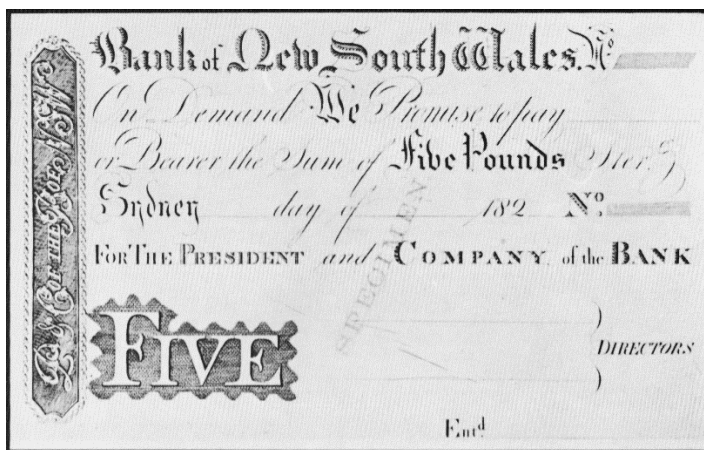 Bank of New South Wales. No
On Demand We Promise to pay
or Bearer the Sum of Five Pounds Sterg
Sydney day of 182 No
FOR THE PRESIDENT and COMPANY of the BANK
FIVE
DIRECTORS
Entd
SPECIMEN
P & Co OF THE B OF N S W